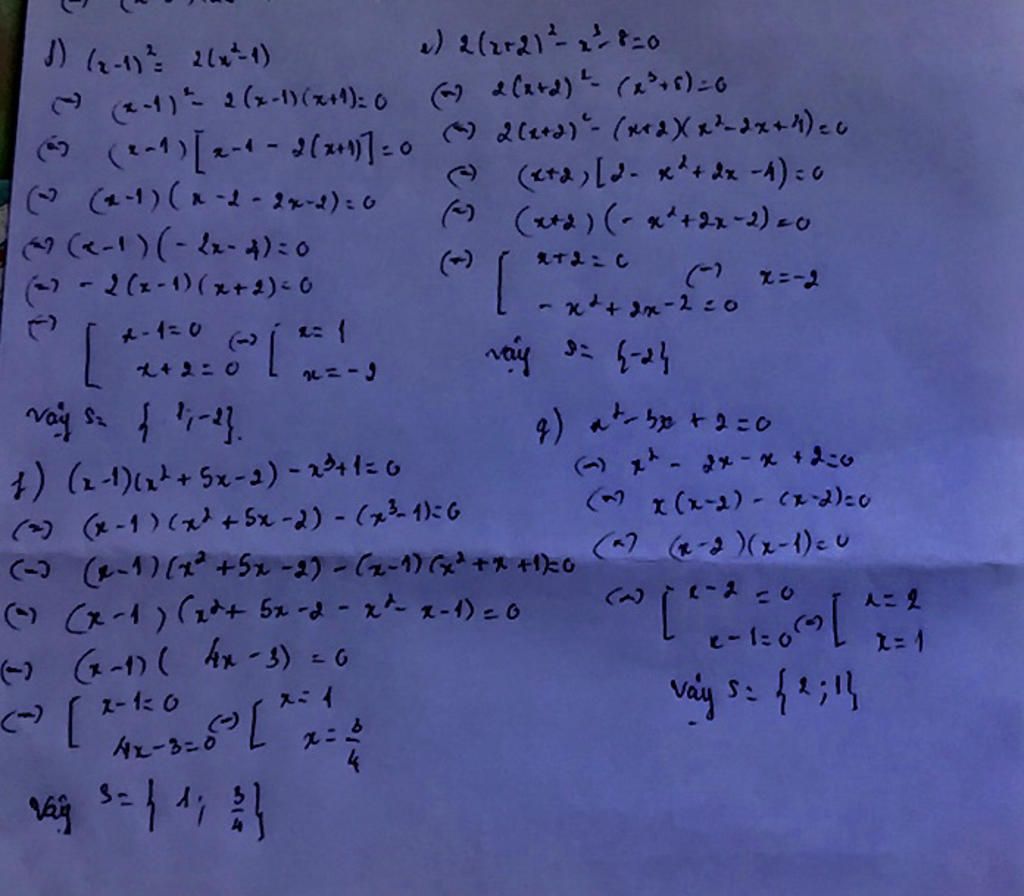 d) (x-1)² = 2(x²-1)
(=) (x-1)² - 2(x-1)(x+1)=0
(=) (x-1)[x-1-2(x+1)]=0
(=) (x-1)(x-2-2x-2)=0
(=) (x-1)(-2x-4)=0
(=) -2(x-1)(x+2)=0
(=) [ x-1=0 (=) [ x=1
x+2=0 x=-2
vậy S= { 1;-2}.
e) 2(x+2)² - x³ - 8=0
(=) 2(x+2)² - (x³+8)=0
(=) 2(x+2)² - (x+2)(x²-2x+4)=0
(=) (x+2)[2-x²+2x-4)=0
(=) (x+2)(-x²+2x-2)=0
(=) [ x+2=0 (=) x=-2
-x²+2x-2=0
vậy S= {-2}
f) (x-1)(x²+5x-2)-x³+1=0
(=) (x-1)(x²+5x-2)-(x³-1)=0
(=) (x-1)(x²+5x-2)-(x-1)(x²+x+1)=0
(=) (x-1)(x²+5x-2-x²-x-1)=0
(=) (x-1)(4x-3)=0
(=) [ x-1=0 (=) [ x=1
4x-3=0 x=3/4
Vậy S={ 1; 3/4 }
g) x²-3x+2=0
(=) x²-2x-x+2=0
(=) x(x-2)-(x-2)=0
(=) (x-2)(x-1)=0
(=) [ x-2=0 (=) [ x=2
x-1=0 x=1
Vậy S= {2;1}